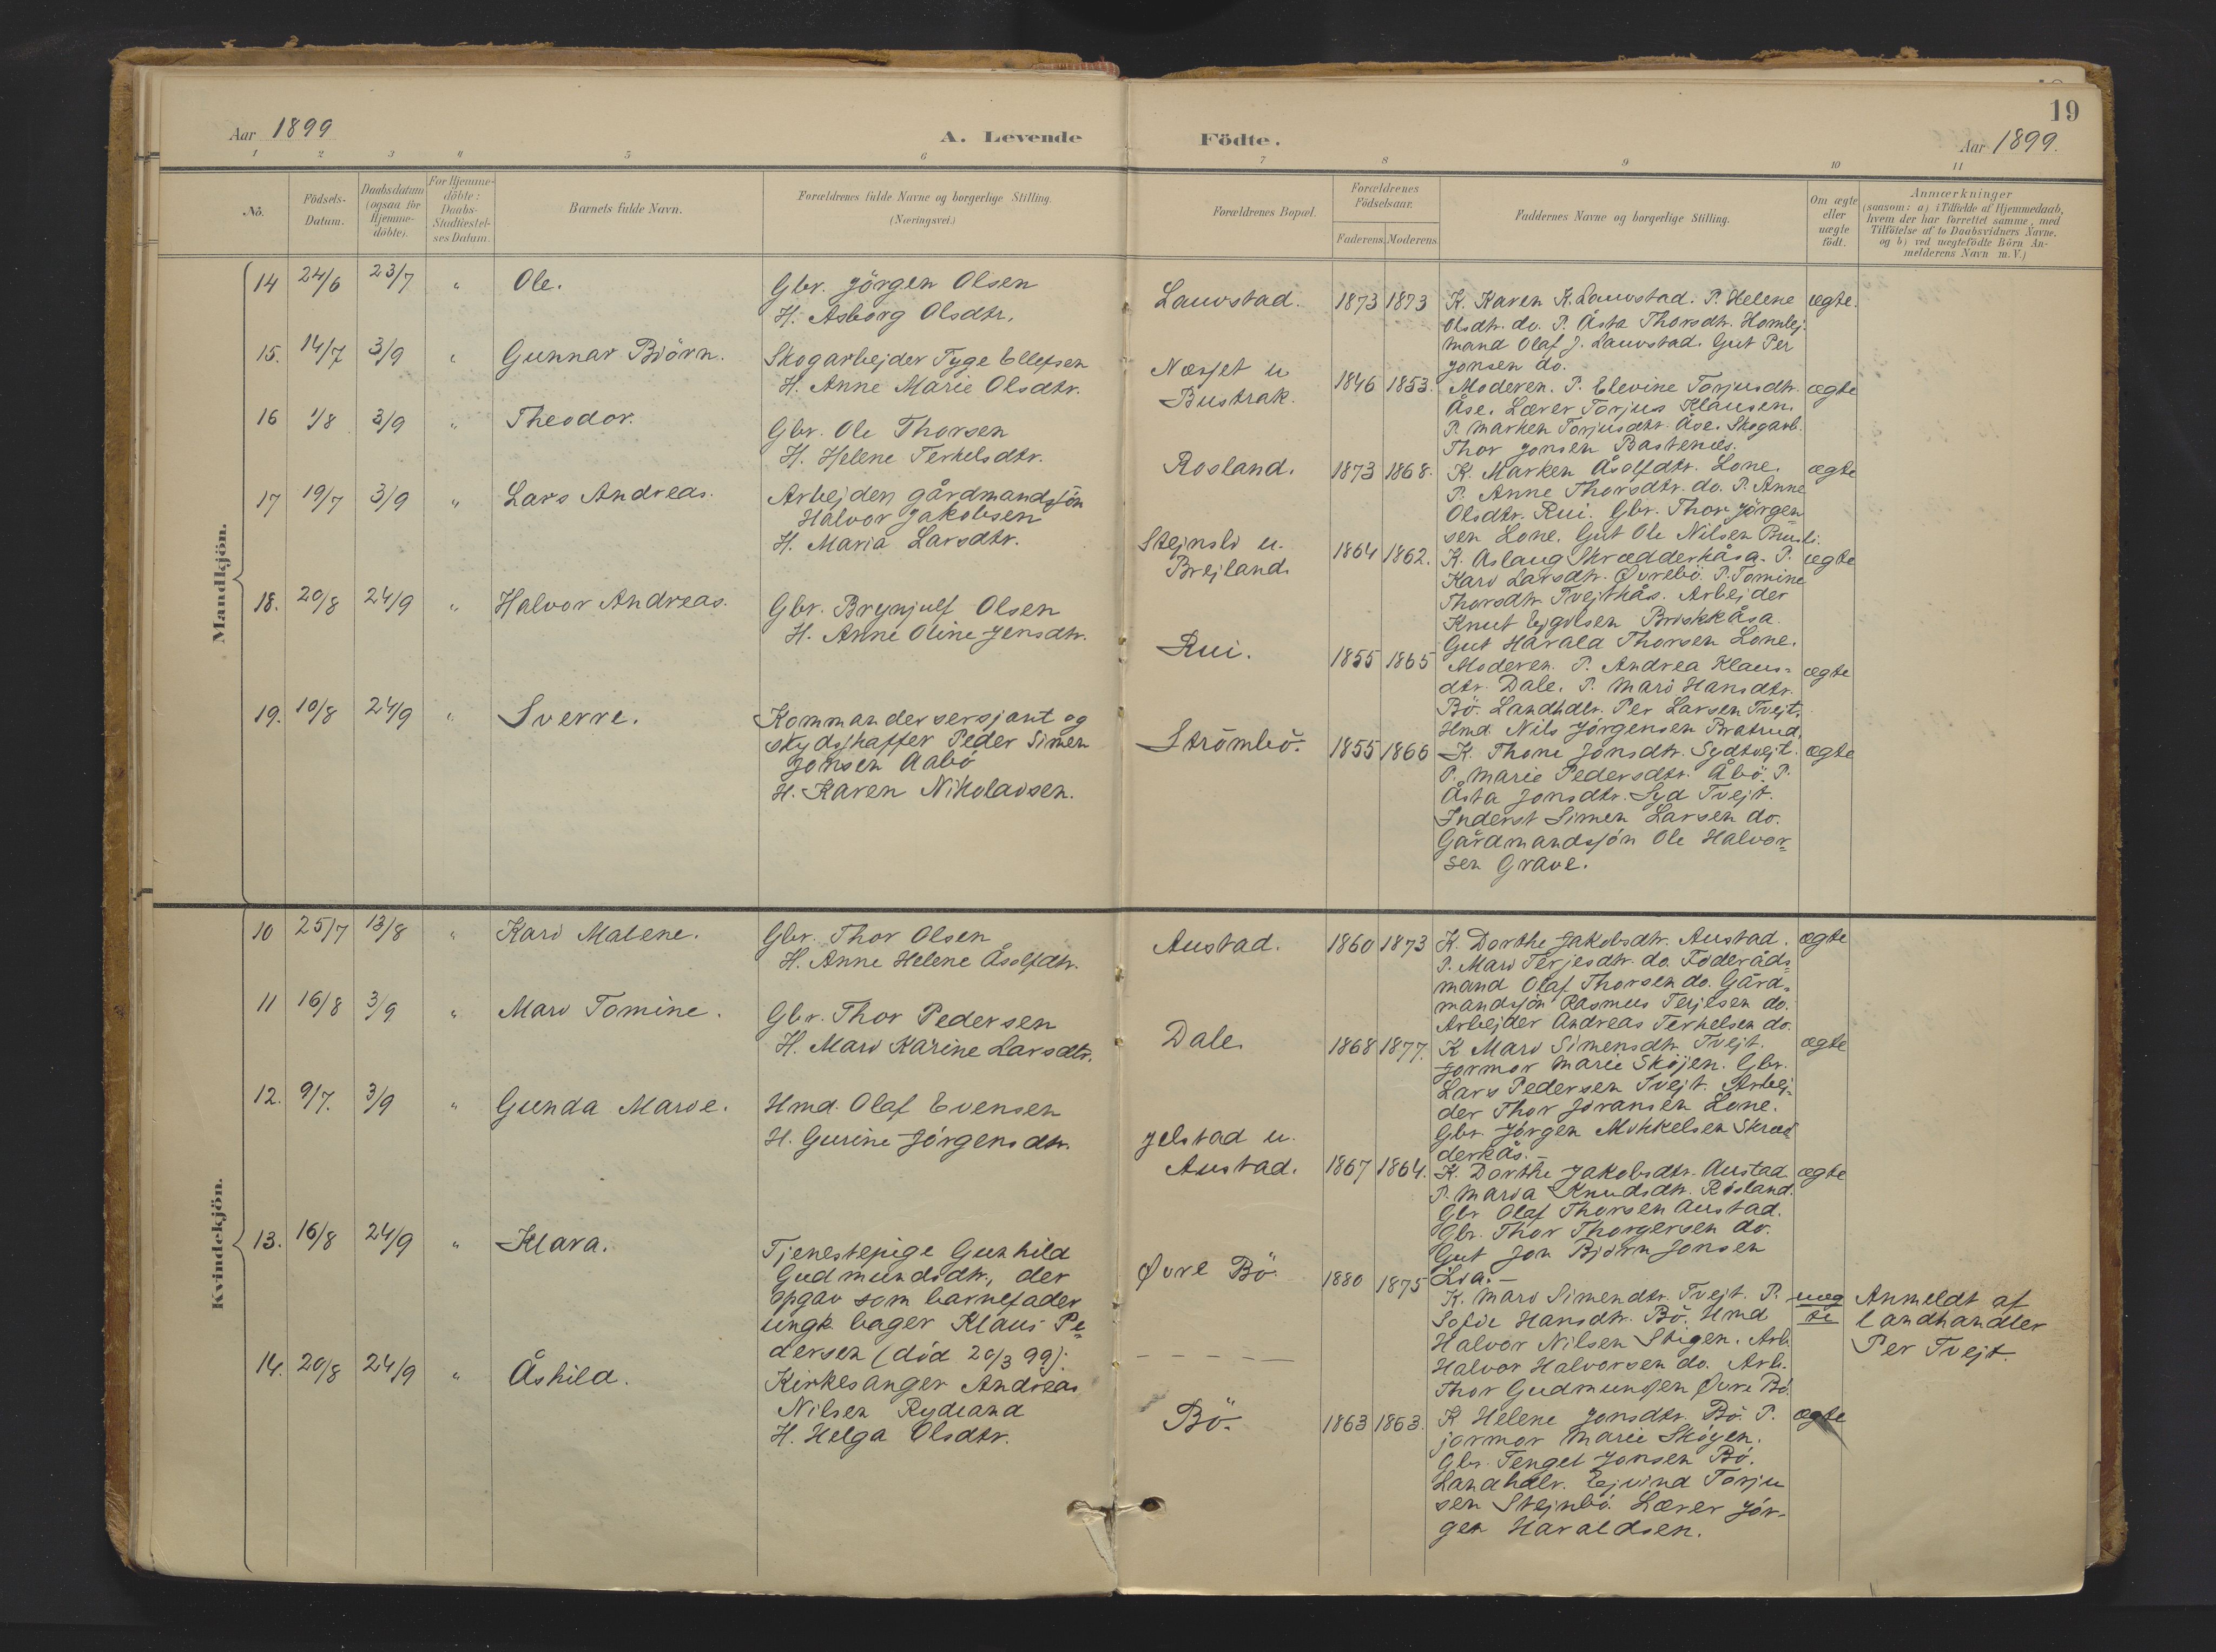 19
Aar 1899
A. Levende
Födte.
Aar 1899.
1 2 3 4 5 6 7 8 9 10 11
No.
Födsels-
Datum.
Daabsdatum
(ogsaa for
Hjemme-
döbte).
For Hjemme-
döbte:
Daabs-
Stadfæstel-
ses Datum.
Barnets fulde Navn.
Forældrenes fulde Navne og borgerlige Stilling.
(Næringsvei.)
Forældrenes Bopæl.
Forældrenes
Födselsaar.
Faderens. Moderens.
Faddernes Navne og borgerlige Stilling.
Om ægte
eller
uægte
födt.
Anmærkninger
(saasom: a) i Tilfælde af Hjemmedaab,
hvem der har forrettet samme, med
Tilföielse af to Daabsvidners Navne,
og b) ved uægtefödte Börn An-
melderens Navn m. V.)
Mandkjön.
14 24/6 23/7 " Ole.
Gbr. Jörgen Olsen
H. Asborg Olsdtr.
Lauvstad. 1873 1873
K. Karen K. Lauvstad. P. Helene
Olsdtr. do. P. Åsta Thorsdtr. Homlej.
Mand Olaf J. Lauvstad. Gut Per
Jonsen do.
ægte.
15. 14/7 3/9 " Gunnar Björn.
Skogarbejder Tyge Ellefsen
H. Anne Marie Olsdtr.
Næsjet u
Bustrak.
1846 1853.
Moderen. P. Elevine Torjusdtr.
Åse. Lærer Torjus Klausen.
P. Marken Torjusdtr. Åse. Skogarb.
Thor Jonsen Bastenes.
ægte
16 1/8 3/9 " Theodor.
Gbr. Ole Thorsen
H. Helene Terkelsdtr.
Rosland. 1873 1868.
K. Marken Åsolfdtr. Lone.
P. Anne Thorsdtr. do. P. Anne
Olsdtr. Rui. Gbr. Thor Jörgen
sen Lone. Gut Ole Nilsen
ægte
17 19/7 3/9 " Lars Andreas.
Arbejder, gårdmandssön
Halvor Jakobsen
H. Maria Larsdtr.
Stejnsli u.
Brejland.
1864 1862.
K. Aslaug Skrædderkåsa. P.
Kari Larsdtr. Øvrebö. P. Tomine
Thorsdtr. Tvejthås. Arbejder
Knut Ejgilsen Briskkåsa.
Gut Harald Thorsen Lone.
ægte
18. 20/8 24/9 " Halvor Andreas.
Gbr. Brynjulf Olsen
H. Anne Oline Jensdtr.
Rui. 1855 1865
Moderen. P. Andrea Klaus-
dtr. Dale. P. Mari Hansdtr.
Bö. Landhdlr. Per Larsen Tvejt.
Hmd. Nils Jörgensen Bratrud.
ægte
19. 10/8 24/9 " Sverre.
Kommandersersjant og
skydsskaffer Peder Simen
Jonsen Aabö
H. Karen Nikolaisen.
Strömbö. 1855 1866
K. Thone Jonsdtr. Sydtvejt.
P. Marie Pedersdtr. Åbö. P.
Åsta Jonsdtr. Syd Tvejt.
Inderst Simen Larsen do.
Gårdmandssön Ole Halvor-
sen Grave.
ægte
Kvindekjön.
10 25/7 13/8 " Kari Malene.
Gbr. Thor Olsen
H. Anne Helene Åsolfdtr.
Austad. 1860 1873
K. Dorthe Jakobsdtr. Austad.
P. Mari Terjesdtr. do. Föderåds-
mand Olaf Thorsen do. Gård-
mandssön Rasmus Terjesen do.
Arbejder Andreas Terkelsen do.
ægte
11 16/8 3/9 " Mari Tomine.
Gbr. Thor Pedersen
H. Mari Karine Larsdtr.
Dale. 1868 1877.
K Mari Simensdtr. Tvejt.
Jormor Marie Sköjen. Gbr.
Lars Pedersen Tvejt. Arbej-
der Thor Jöransen Lone.
Gbr. Jörgen Mikkelsen Skræd
derkås.-
ægte
12. 9/7. 3/9 " Gunda Marie.
Hmd. Olaf Evensen
H. Gurine Jörgensdtr.
Jelstad u.
Austad.
1867 1864.
K. Dorthe Jakobsdtr. Austad
P. Maria Knudsdtr. Rosland.
Gbr Olaf Thorsen Austad.
Gbr. Thor Thorgersen do.
Gut Jon Björn Jonsen
Lia.-
ægte
13. 16/8 24/9 " Klara.
Tjenestepige Gunhild
Gudmundsdtr., der
opgav som barnefader
ungk. bager Klaus Pe-
dersen (död 20/3 99).
Øvre Bö. 1880 1875
K. Mari Simendtr. Tvejt. P.
Sofie Hansdtr. Bö. Hmd
Halvor Nilsen Stigen. Arb.
Halvor Halvorsen do. Arb.
Thor Gudmundsen Øvre Bö.
uæg
te
Anmeldt af
landhandler
Per Tvejt.
14. 20/8 24/9 " Åshild.
Kirkesanger Andreas
Nilsen Rydland
H. Helga Olsdtr.
Bö. 1863 1863.
K. Helene Jonsdtr. Bö. P.
jormor Marie Sköyen.
Gbr. Tengel Jonsen Bö.
Landhdlr. Ejvind Torju
sen Stejnbö. Lærer Jör-
gen Haraldsen.
ægte